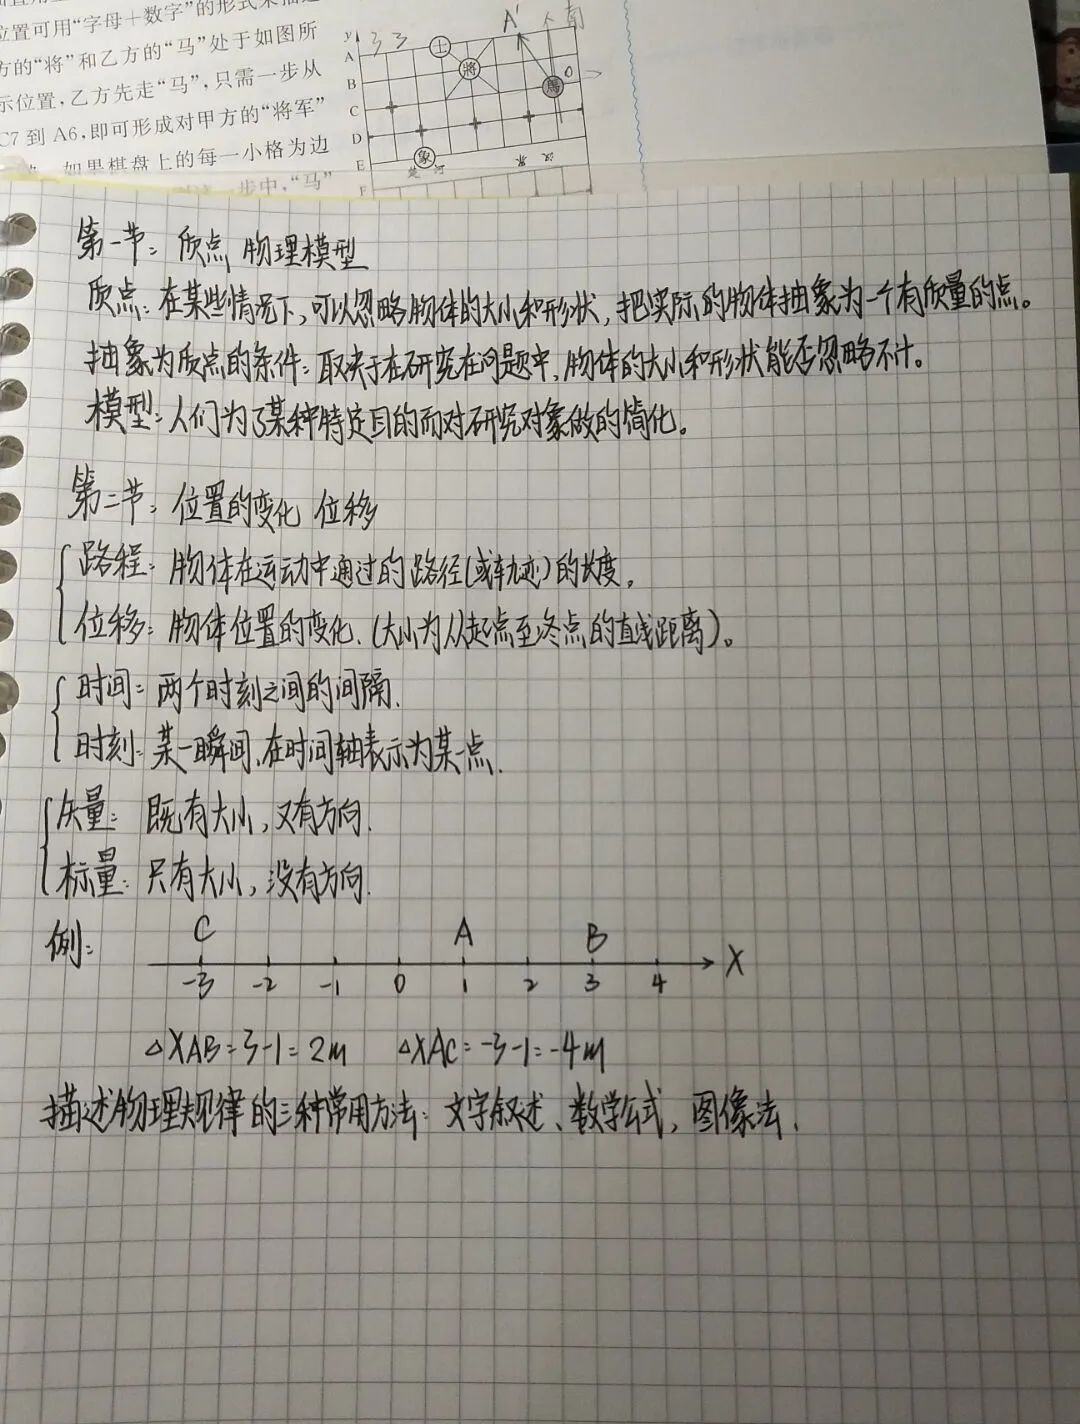 位置可用“字母+数字”的形式来描述
方的“将”和乙方的“马”处于如图所
示位置，乙方先走“马”，只需一步从
C7 到 A6，即可形成对甲方的“将军”
如果棋盘上的每一小格为边
步中，“马”
A'
y
A
B
C
D
E
F
士
將
馬
0
象
楚河
汉界
第一节：质点 物理模型
质点：在某些情况下，可以忽略物体的大小和形状，把实际的物体抽象为一个有质量的点。
抽象为质点的条件：取决于在研究在问题中，物体的大小和形状能否忽略不计。
模型：人们为了某种特定目的而对研究对象做的简化。
第二节：位置的变化 位移
路程：物体在运动中通过的路径(或轨迹)的长度。
位移：物体位置的变化.(大小为从起点至终点的直线距离)。
时间：两个时刻之间的间隔.
时刻：某一瞬间,在时间轴表示为某一点.
矢量：既有大小，又有方向.
标量：只有大小，没有方向.
例：
C A B
-3 -2 -1 0 1 2 3 4 X
△XAB=3-1=2m △XAC=-3-1=-4m
描述物理规律的三种常用方法：文字叙述、数学公式，图像法.